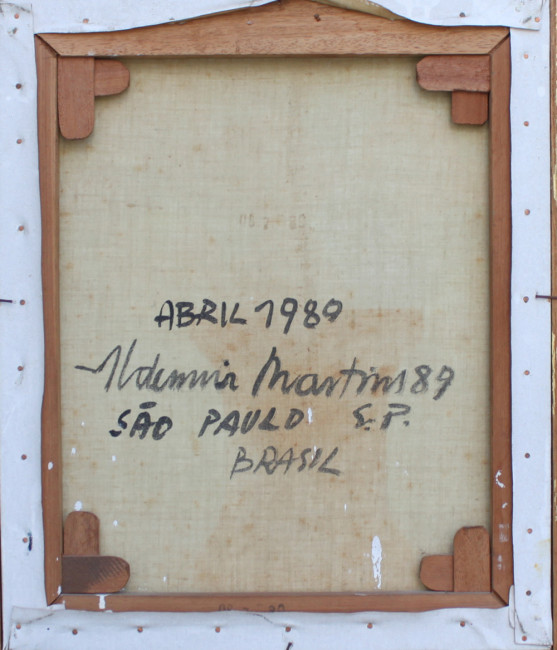 ABRIL 1989
Aldemir Martins 89
SÃO PAULO S.P.
BRASIL